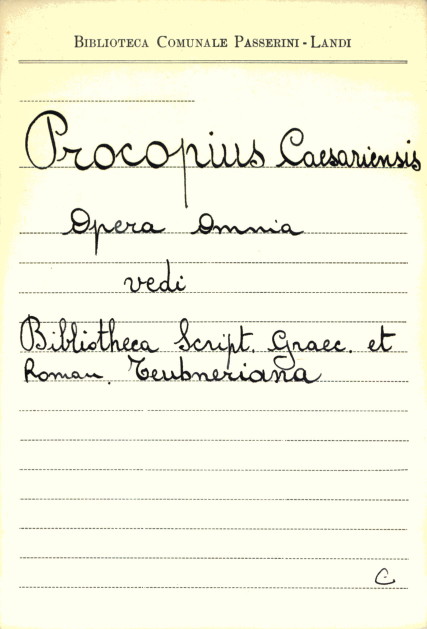 BIBLIOTECA COMUNALE PASSERINI - LANDI
Procopius Caesariensis
Opera Omnia
vedi
Bibliotheca Script. Graec. et
Roman. Teubneriana
C.